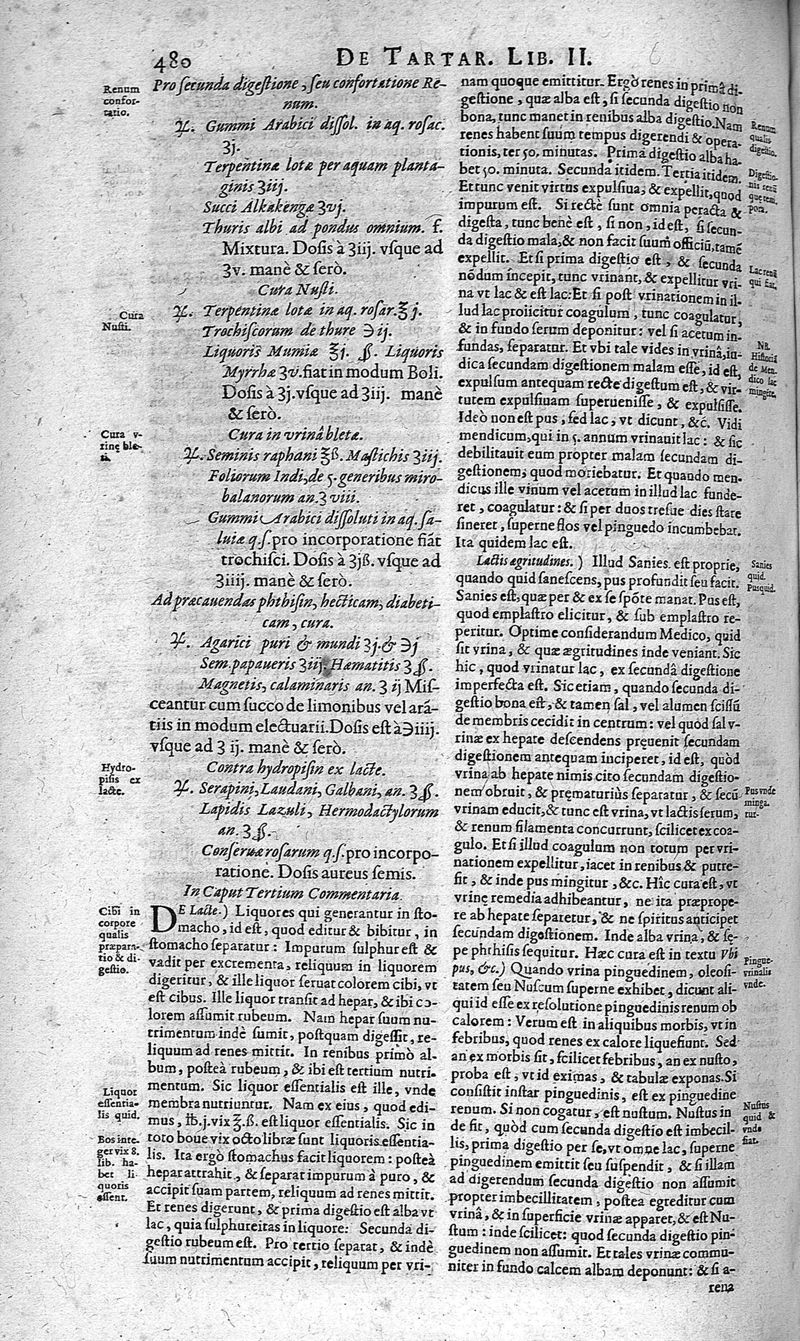 480
DE TARTAR. LIB. II.
Renum
confor-
tatio.
Pro secunda digestione, seu confortatione Re-
num.
♃. Gummi Arabici dissol. in aq. rosac.
ʒj.
Terpentinæ lotæ per aquam planta-
ginis ʒiij.
Succi Alkakengæ ʒvj.
Thuris albi ad pondus omnium. f.
Mixtura. Dosis à ʒiij. vsque ad
ʒv. manè & serò.
Cura Nusti.
Cura
Nusti.
♃. Terpentinæ lotæ in aq. rosar. ℥j.
Trochiscorum de thure ℈ij.
Liquoris Mumiæ ℥j. ß. Liquoris
Myrrhæ ʒv. fiat in modum Boli.
Dosis à ʒj. vsque ad ʒiij. manè
& serò.
Cura in vrinâ bletæ.
Cura v-
rinę ble-
tæ.
♃. Seminis raphani ℥ß. Mastichis ʒiij.
Foliorum Indi, de 5. generibus miro-
balanorum an. ʒviii.
Gummi Arabici dissoluti in aq. sa-
luiæ q.s. pro incorporatione fiāt
trochisci. Dosis à ʒjß. vsque ad
ʒiiij. manè & serò.
Ad præcauendas phthisin, hecticam, diabeti-
cam, cura.
♃. Agarici puri & mundi ʒj. & ℈j
Sem. papaueris ʒiij. Hæmatitis ʒß.
Magnetis, calaminaris an. ʒ ij Mis-
ceantur cum succo de limonibus vel arā-
tiis in modum electuarii. Dosis est à ℈iiij.
vsque ad ʒ ij. manè & serò.
Contra hydropisin ex lacte.
Hydro-
pisis ex
lacte.
♃. Serapini, Laudani, Galbani, an. ʒß.
Lapidis Lazuli, Hermodactylorum
an. ʒß.
Conseruæ rosarum q.s. pro incorpo-
ratione. Dosis aureus semis.
In Caput Tertium Commentaria.
Cibi in
corpore
qualis
præpara-
tio & di-
gestio.
DE Lacte.) Liquores qui generantur in sto-
macho, id est, quod editur & bibitur, in
stomacho separatur: Impurum sulphur est &
vadit per excrementa, reliquum in liquorem
digeritur, & ille liquor seruat colorem cibi, vt
est cibus. Ille liquor transit ad hepar, & ibi co-
lorem assumit rubeum. Nam hepar suum nu-
trimentum indè sumit, postquam digessit, re-
liquum ad renes mittit. In renibus primò al-
bum, posteà rubeum, & ibi est tertium nutri-
mentum. Sic liquor essentialis est ille, vnde
Liquor
essentia-
lis quid.
membra nutriuntur. Nam ex eius, quod edi-
mus, ℔.j. vix ʒ.ß. est liquor essentialis. Sic in
Bos inte-
ger vix 8.
lib. ha-
bet li-
quoris
essent.
toto boue vix octo libræ sunt liquoris essentia-
lis. Ita ergò stomachus facit liquorem: posteà
hepar attrahit, & separat impurum à puro, &
accipit suam partem, reliquum ad renes mittit.
Et renes digerunt, & prima digestio est alba vt
lac, quia sulphureitas in liquore: Secunda di-
gestio rubeum est. Pro tertio separat, & indè
suum nutrimentum accipit, reliquum per vri-
nam quoque emittitur. Ergò renes in primâ di-
gestione, quæ alba est, si secunda digestio non
bona, tunc manet in renibus alba digestio. Nam
Renum
qualis
digestio.
renes habent suum tempus digerendi & opera-
tionis, ter 50. minutas. Prima digestio alba ha-
bet 50. minuta. Secunda itidem. Tertia itidem.
Digestio-
nis secū
quę tem-
pora.
Et tunc venit virtus expulsiua, & expellit, quod
impurum est. Si rectè sunt omnia peracta &
digesta, tunc benè est, si non, id est, si secun-
da digestio mala, & non facit suum officiū, tamē
expellit. Et si prima digestio est, & secunda
nōdum incepit, tunc vrinant, & expellitur vri-
Lac renū
qui fiat.
na vt lac & est lac: Et si post vrinationem in il-
lud lac proiicitur coagulum, tunc coagulatur,
& in fundo serum deponitur: vel si acetum in-
fundas, separatur. Et vbi tale vides in vrinâ, iu-
Nā.
Historia
de Men-
dico lac
mingēte.
dica secundam digestionem malam esse, id est,
expulsum antequam rectè digestum est, & vir-
tutem expulsiuam superuenisse, & expulsisse.
Ideò non est pus, sed lac, vt dicunt, &c. Vidi
mendicum, qui in 5. annum vrinauit lac: & sic
debilitauit eum propter malam secundam di-
gestionem, quod moriebatur. Et quando men-
dicus ille vinum vel acetum in illud lac funde-
ret, coagulatur: & si per duos tresue dies stare
sineret, superne flos vel pinguedo incumbebat.
Ita quidem lac est.
Lactis ægritudines.) Illud Sanies. est proprie,
Sanies
quid.
Pus quid.
quando quid sanescens, pus profundit seu facit.
Sanies est, quæ per & ex se spōte manat. Pus est,
quod emplastro elicitur, & sub emplastro re-
peritur. Optime considerandum Medico, quid
sit vrina, & quæ ægritudines inde veniant. Sic
hic, quod vrinatur lac, ex secundâ digestione
imperfecta est. Sic etiam, quando secunda di-
gestio bona est, & tamen sal, vel alumen scissū
de membris cecidit in centrum: vel quòd sal v-
rinæ ex hepate descendens pręuenit secundam
digestionem antequam inciperet, id est, quòd
vrina ab hepate nimis cito secundam digestio-
nem obruit, & pręmaturiùs separatur, & secū
Pus vnde
minga-
tur.
vrinam educit, & tunc est vrina, vt lactis serum,
& renum filamenta concurrunt, scilicet ex coa-
gulo. Et si illud coagulum non totum per vri-
nationem expellitur, iacet in renibus & putre-
fit, & inde pus mingitur, &c. Hîc cura est, vt
vrinę remedia adhibeantur, ne ita præprope-
re ab hepate separetur, & ne spiritus anticipet
secundam digestionem. Inde alba vrina, & sę-
pe phthisis sequitur. Hæc cura est in textu Vbi
pus, &c.) Quando vrina pinguedinem, oleosi-
Pingue-
vrinalis
vnde.
tatem seu Nuscum superne exhibet, dicunt ali-
qui id esse ex resolutione pinguedinis renum ob
calorem: Verum est in aliquibus morbis, vt in
febribus, quod renes ex calore liquefiunt. Sed
an ex morbis sit, scilicet febribus, an ex nusto,
proba est, vt id eximas, & tabulæ exponas. Si
consistit instar pinguedinis, est ex pinguedine
renum. Si non cogatur, est nustum. Nustus in-
Nustus
quid &
vnde
fiat.
de fit, quòd cum secunda digestio est imbecil-
lis, prima digestio per se, vt omne lac, superne
pinguedinem emittit seu suspendit, & si illam
ad digerendum secunda digestio non assumit
propter imbecillitatem, postea egreditur cum
vrinâ, & in superficie vrinæ apparet, & est Nu-
stum: inde scilicet: quod secunda digestio pin-
guedinem non assumit. Et tales vrinæ commu-
niter in fundo calcem albam deponunt: & si a-
rena